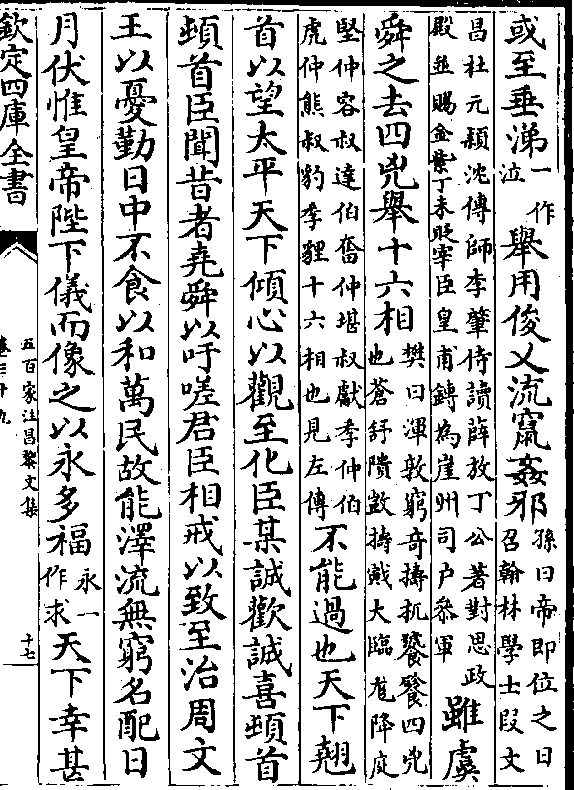 或至垂涕
一作
泣
舉用俊乂流竄姦邪
孫曰帝即位之日
召翰林學士段文
昌杜元穎沈傳師李肇侍讀薛放丁公著對思政
殿並賜金紫丁未貶宰臣皇甫鎛為崖州司户叅軍
雖虞
舜之去四兇舉十六相
樊曰渾敦窮奇擣杌饕餮四兇
也蒼舒隤敳擣戭大臨尨降庭
堅仲容叔達伯奮仲堪叔獻季仲伯
虎仲熊叔豹季貍十六相也見左傳
不能過也天下翹
首以望太平天下傾心以觀至化臣某誠歡誠喜頓首
頓首臣聞昔者堯舜以吁嗟君臣相戒以致至治周文
王以憂勤日中不食以和萬民故能澤流無窮名配日
月伏惟皇帝陛下儀而像之以永多福
永一
作求
天下幸甚
欽定四庫全書
五百家注昌黎文集
卷三十九
十七